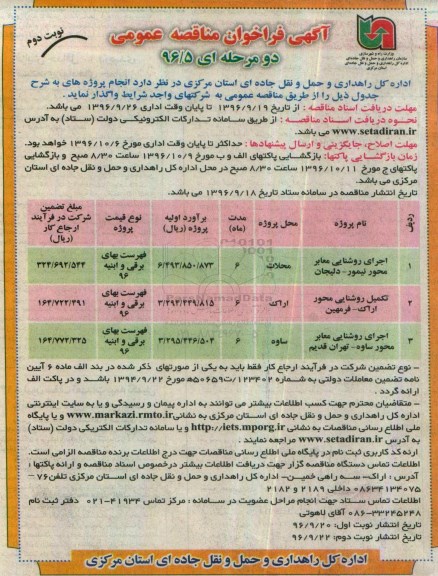 آگهی فراخوان مناقصه عمومی
نوبت دوم
دو مرحله ای ۹۶/۵
وزارت راه و شهرسازی
سازمان راهداری و حمل و نقل جاده ای
اداره کل راهداری و حمل و نقل جاده ای
استان مرکزی
اداره کل راهداری و حمل و نقل جاده ای استان مرکزی در نظر دارد انجام پروژه های به شرح
جدول ذیل را از طریق مناقصه عمومی به شرکتهای واجد شرایط واگذار نماید.
مهلت دریافت اسناد مناقصه : از تاریخ ۱۳۹۶/۹/۱۹ تا پایان وقت اداری ۱۳۹۶/۹/۲۶ می باشد.
نحوه دریافت اسناد مناقصه : از طریق سامانه تدارکات الکترونیکی دولت (ستاد) به آدرس
www.setadiran.ir می باشد.
مهلت اصلاح، جایگزینی و ارسال پیشنهادها : حداکثر تا پایان وقت اداری مورخ ۱۳۹۶/۱۰/۶ خواهد بود.
زمان بازگشایی پاکتها: بازگشایی پاکتهای الف و ب مورخ ۱۳۹۶/۱۰/۹ ساعت ۸/۳۰ صبح و بازگشایی
پاکتهای ج مورخ ۱۳۹۶/۱۰/۱۱ ساعت ۸/۳۰ صبح در محل اداره کل راهداری و حمل و نقل جاده ای استان
مرکزی می باشد.
تاریخ انتشار مناقصه در سامانه ستاد تاریخ ۱۳۹۶/۹/۱۸ می باشد.
ردیف نام پروژه محل پروژه مدت (ماه) برآورد اولیه پروژه (ریال) نوع قیمت پروژه مبلغ تضمین شرکت در فرآیند ارجاع کار (ریال)
۱ اجرای روشنایی معابر محور نیمور- دلیجان محلات ۶ ۶/۴۹۳/۸۵۰/۸۷۳ فهرست بهای برقی و ابنیه ۹۶ ۳۲۴/۶۹۲/۵۴۴
۲ تکمیل روشنایی محور اراک- فرمهین اراک ۶ ۳/۲۹۴/۴۴۹/۸۱۵ فهرست بهای برقی و ابنیه ۹۶ ۱۶۴/۷۲۲/۴۹۱
۳ اجرای روشنایی معابر محور ساوه- تهران قدیم ساوه ۶ ۳/۲۹۵/۴۴۶/۵۰۴ فهرست بهای برقی و ابنیه ۹۶ ۱۶۴/۷۷۲/۳۲۵
- نوع تضمین شرکت در فرآیند ارجاع کار فقط باید به یکی از صورتهای ذکر شده در بند الف ماده ۶ آیین
نامه تضمین معاملات دولتی به شماره ۱۲۳۴۰۲/ت۵۰۶۵۹ه مورخ ۱۳۹۴/۹/۲۲ باشد و در پاکت الف
ارائه گردد.
- متقاضیان محترم جهت کسب اطلاعات بیشتر می توانند به اداره پیمان و رسیدگی و یا به سایت اینترنتی
اداره کل راهداری و حمل و نقل جاده ای استان مرکزی به نشانی www.markazi.rmto.ir و یا پایگاه
ملی اطلاع رسانی مناقصات به نشانی http://iets.mporg.ir و یا سامانه تدارکات الکتریکی دولت (ستاد)
به آدرس www.setadiran.ir مراجعه نمایند.
ارئه کد کاربری ثبت نام در پایگاه ملی اطلاع رسانی مناقصات جهت درج اطلاعات برنده مناقصه الزامی است.
اطلاعات تماس دستگاه مناقصه گزار جهت دریافت اطلاعات بیشتر درخصوص اسناد مناقصه و ارائه پاکتها :
آدرس : اراک- سه راهی خمین- اداره کل راهداری و حمل و نقل جاده ای استان مرکزی تلفن ۷۶-
۰۸۶۳۴۱۳۴۰۷۵ داخلی ۲۱۸۹ و ۲۱۸۲
اطلاعات تماس ستاد جهت انجام مراحل عضویت در سامانه : مرکز تماس ۴۱۹۳۴-۰۲۱ دفتر ثبت نام
۳۳۲۴۵۲۴۸-۰۸۶ آقای لاهوتی
تاریخ انتشار نوبت اول: ۹۶/۹/۲۰
تاریخ انتشار نوبت دوم: ۹۶/۹/۲۲
اداره کل راهداری و حمل و نقل جاده ای استان مرکزی